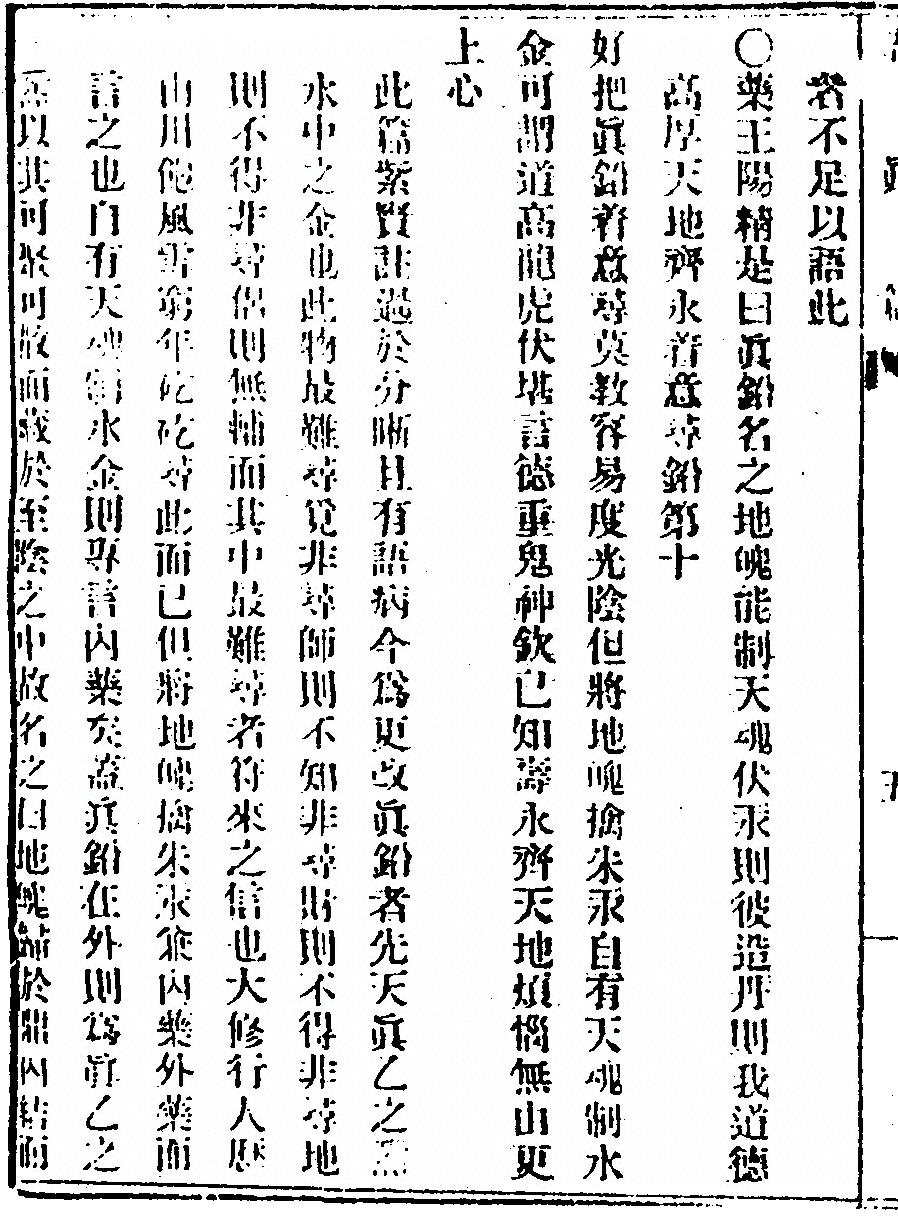 者不足以語此
〇藥王陽精是曰眞鉛名之地魄能制天魂伏汞則彼造丹則我道德
高厚天地齊永着意尋鉛第十
好把眞鉛着意尋莫教容易度光陰但將地魄擒朱汞自有天魂制水
金可謂道高龍虎伏堪言德重鬼神欽已知壽永齊天地煩惱無由更
上心
此篇紫賢註過於分晰且有語病今爲更改眞鉛者先天眞乙之炁
水中之金也此物最難尋覓非尋師則不知非尋財則不得非尋地
則不得非尋侶則無輔而其中最難尋者符來之信也大修行人歷
山川飽風霜窮年矻矻尋此而已但將地魄擒朱汞兼內藥外藥而
言之也自有天魂制水金則專言內藥矣蓋眞鉛在外則爲眞乙之
炁以其可聚可放而藏於至陰之中故名之曰地魄歸於鼎內結而